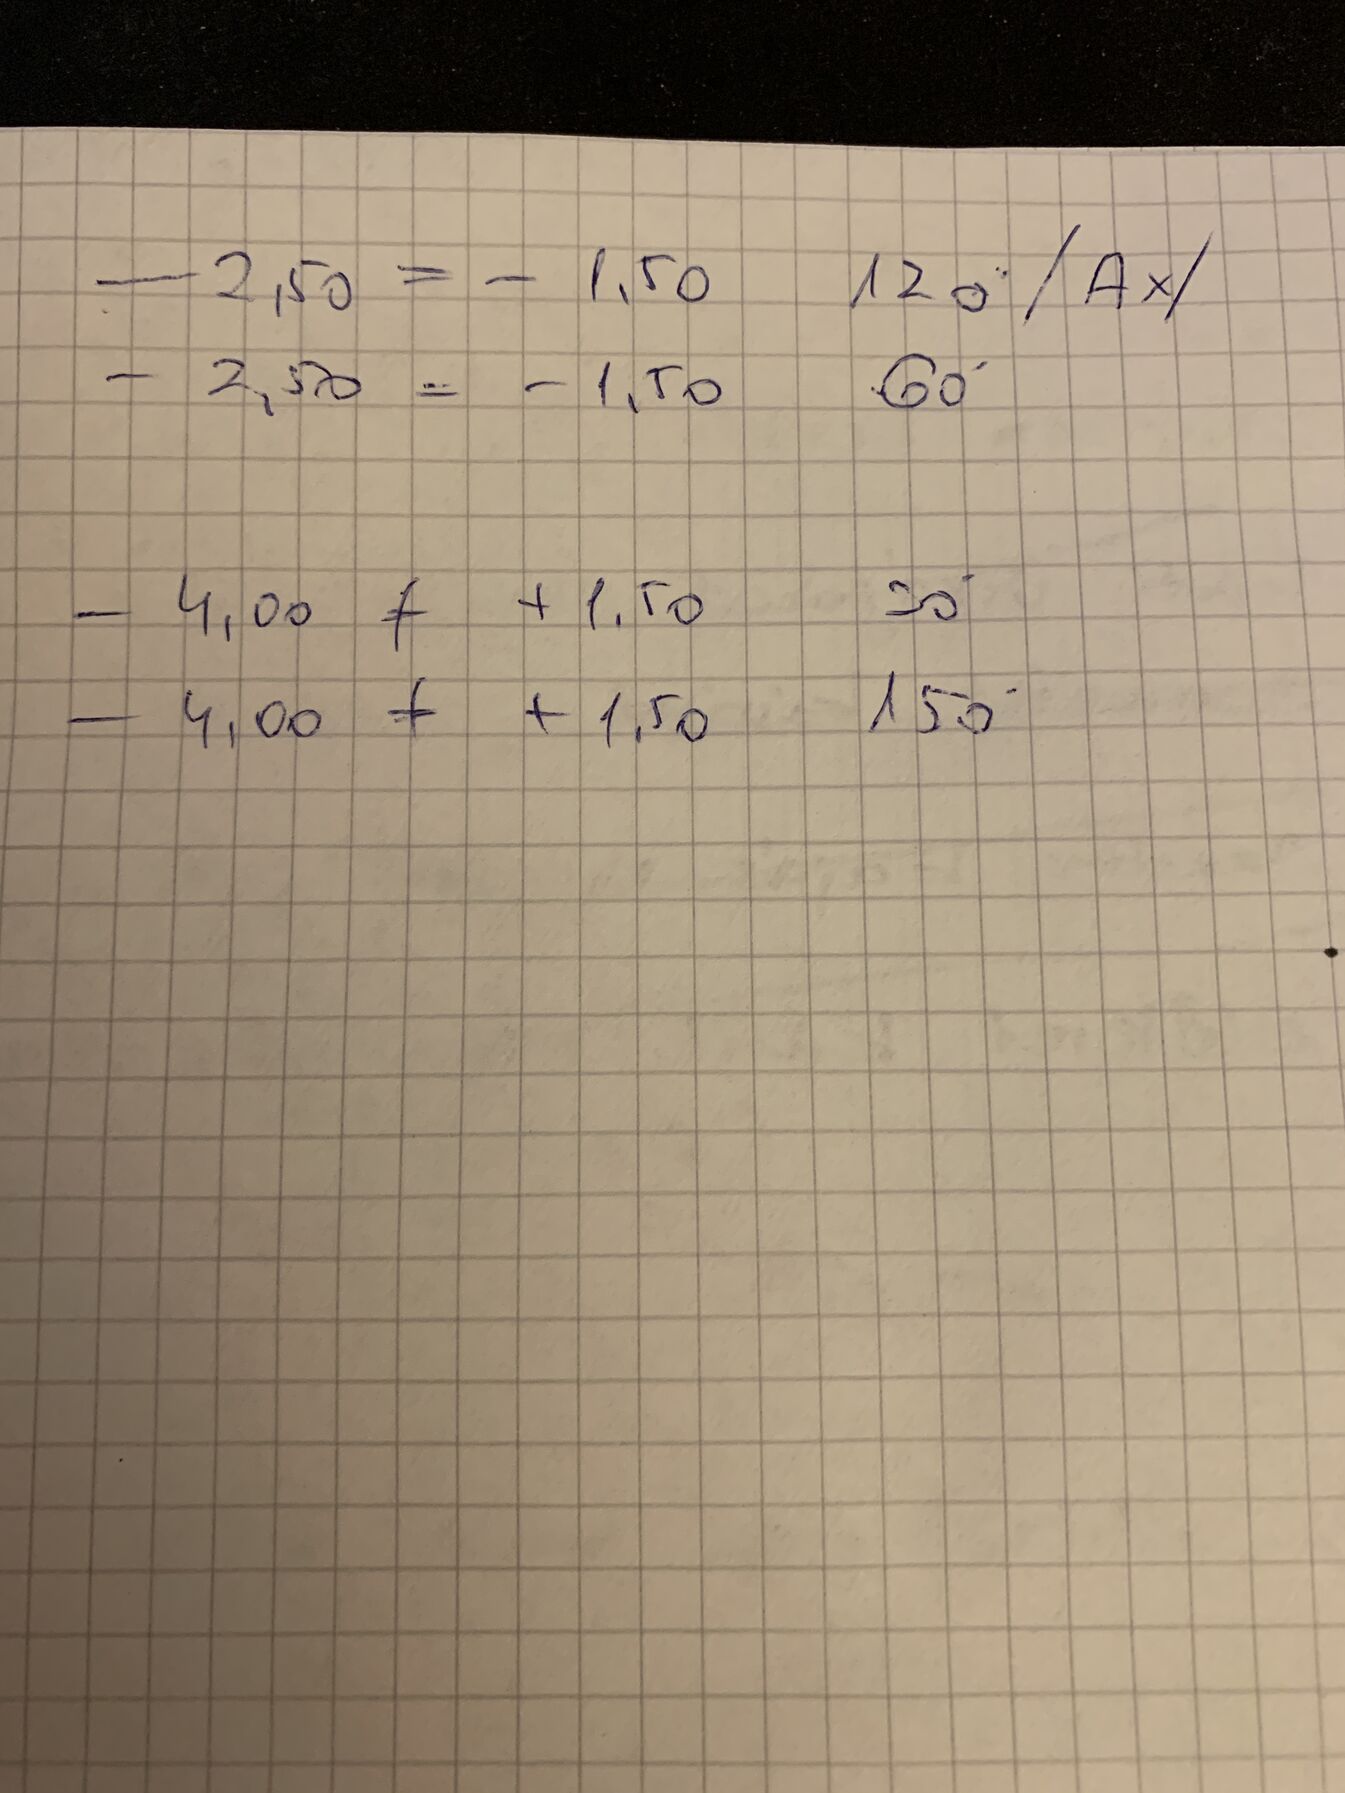 — 2,50 = - 1,50 120° /Ax/
- 2,50 = - 1,50 60°
- 4,00 ≠ +1,50 30°
- 4,00 ≠ +1,50 150°